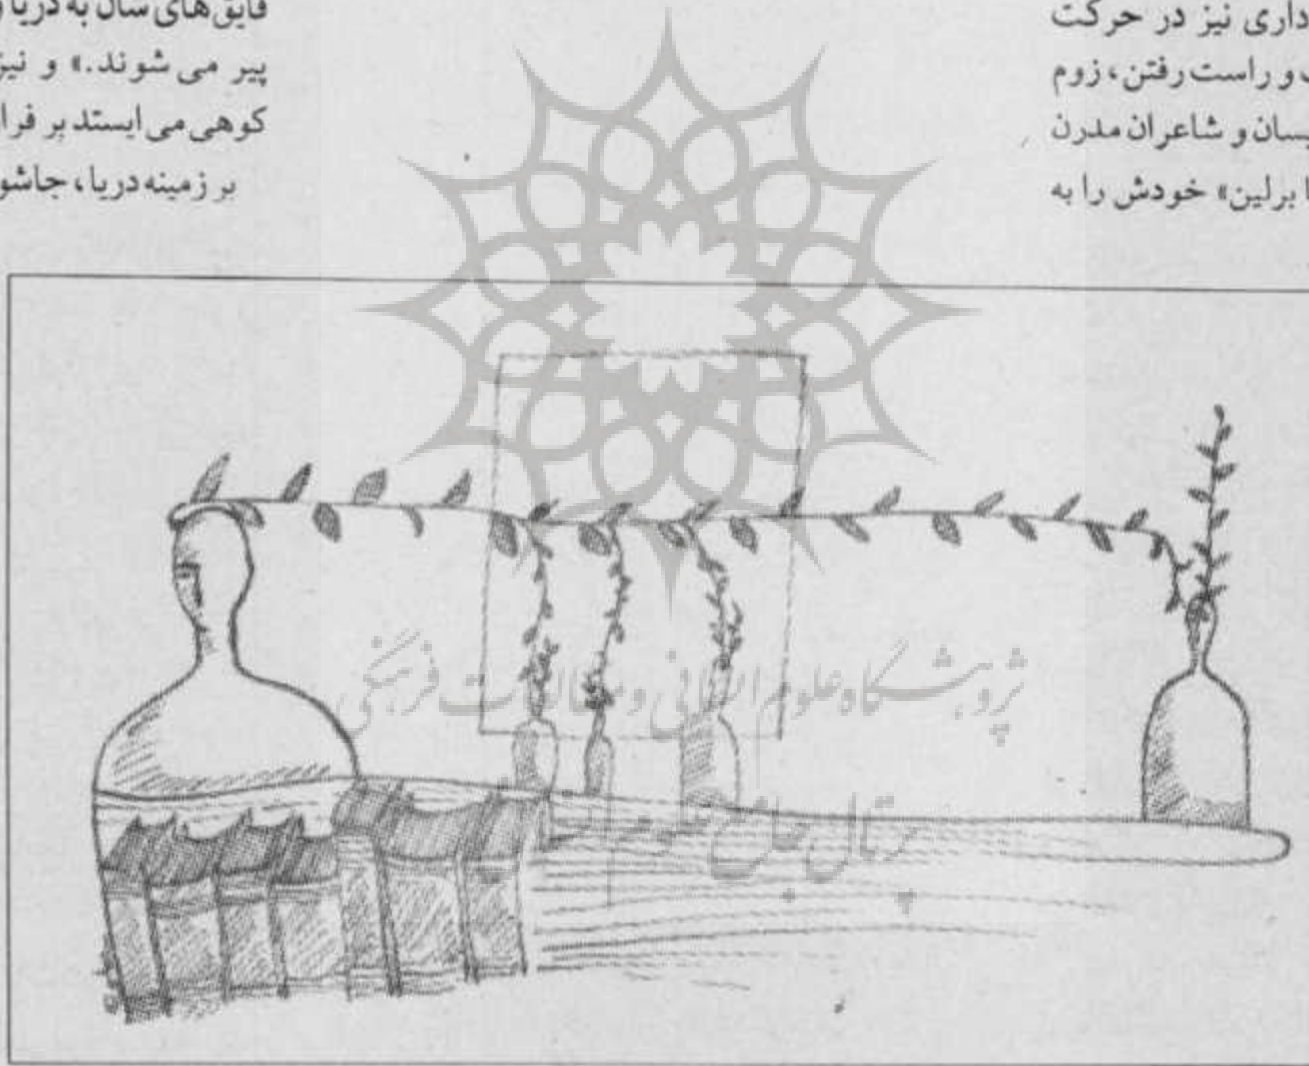 داری نیز در حرکت
و راست رفتن، زوم
یسان و شاعران مدرن
برلین» خودش را به
قایق‌های سان به دریا
پیر می‌شوند.» و نیز
کوهی می‌ایستد بر فرا
بر زمینه دریا، جاشو
پژوهشگاه علوم انسانی و مطالعات فرهنگی
پرتال جامع علوم انسانی